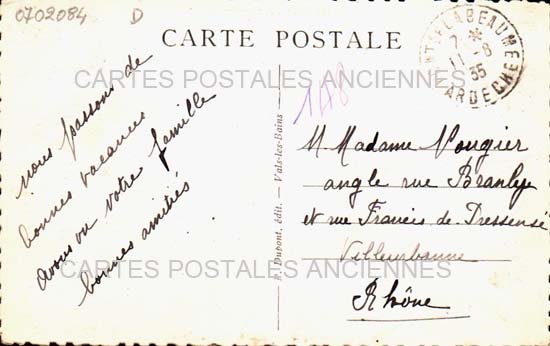 0702084 D
CARTE POSTALE
LABEAUME
7 *
11-8
35
ARDECHE
CARTES POSTALES ANCIENNES
148
nous passons de
bonnes vacances
avons vu votre famille
bonnes amitiés
Dupont, édit. - Vals-les-Bains
M Madame Vougier
angle rue Branlye
et rue Francis de Pressensé
Villeurbanne
CARTES POSTALES ANCIENNES
Rhône